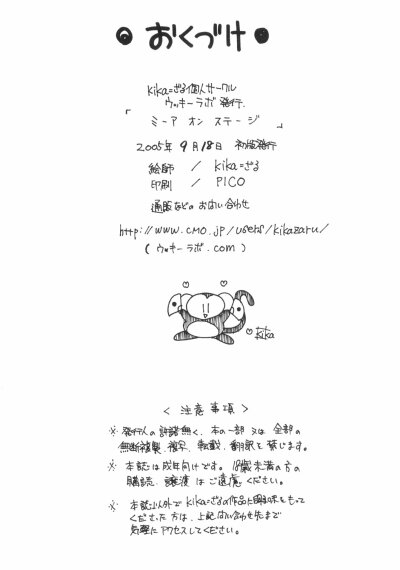 おくづけ
kika=ざる個人サークル
ウッキーラボ 発行.
「ミーア オン ステージ」
2005年 9月18日 初版発行
絵師 / kika=ざる
印刷 / PICO
通販などの お問い合わせ
http://www.cmo.jp/users/kikazaru/
( ウッキーラボ.com )
kika
< 注意事項 >
※ 発行人の許諾無く、本の一部又は全部の
無断複製、複写、転載、翻訳を禁じます。
※ 本誌は成年向けです。18歳未満の方の
購読、譲渡はご遠慮ください。
※ 本誌以外で kika=ざるの作品に興味をもって
くださった方は、上記問い合わせ先まで
気軽にアクセスしてください。